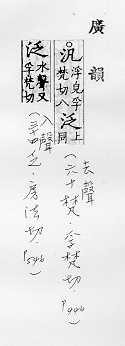 廣韻
汎浮皃孚梵切八泛上同
去聲
(六十梵,孚梵切.
泛水聲又孚梵切
入聲
(三十四乏,房法切.